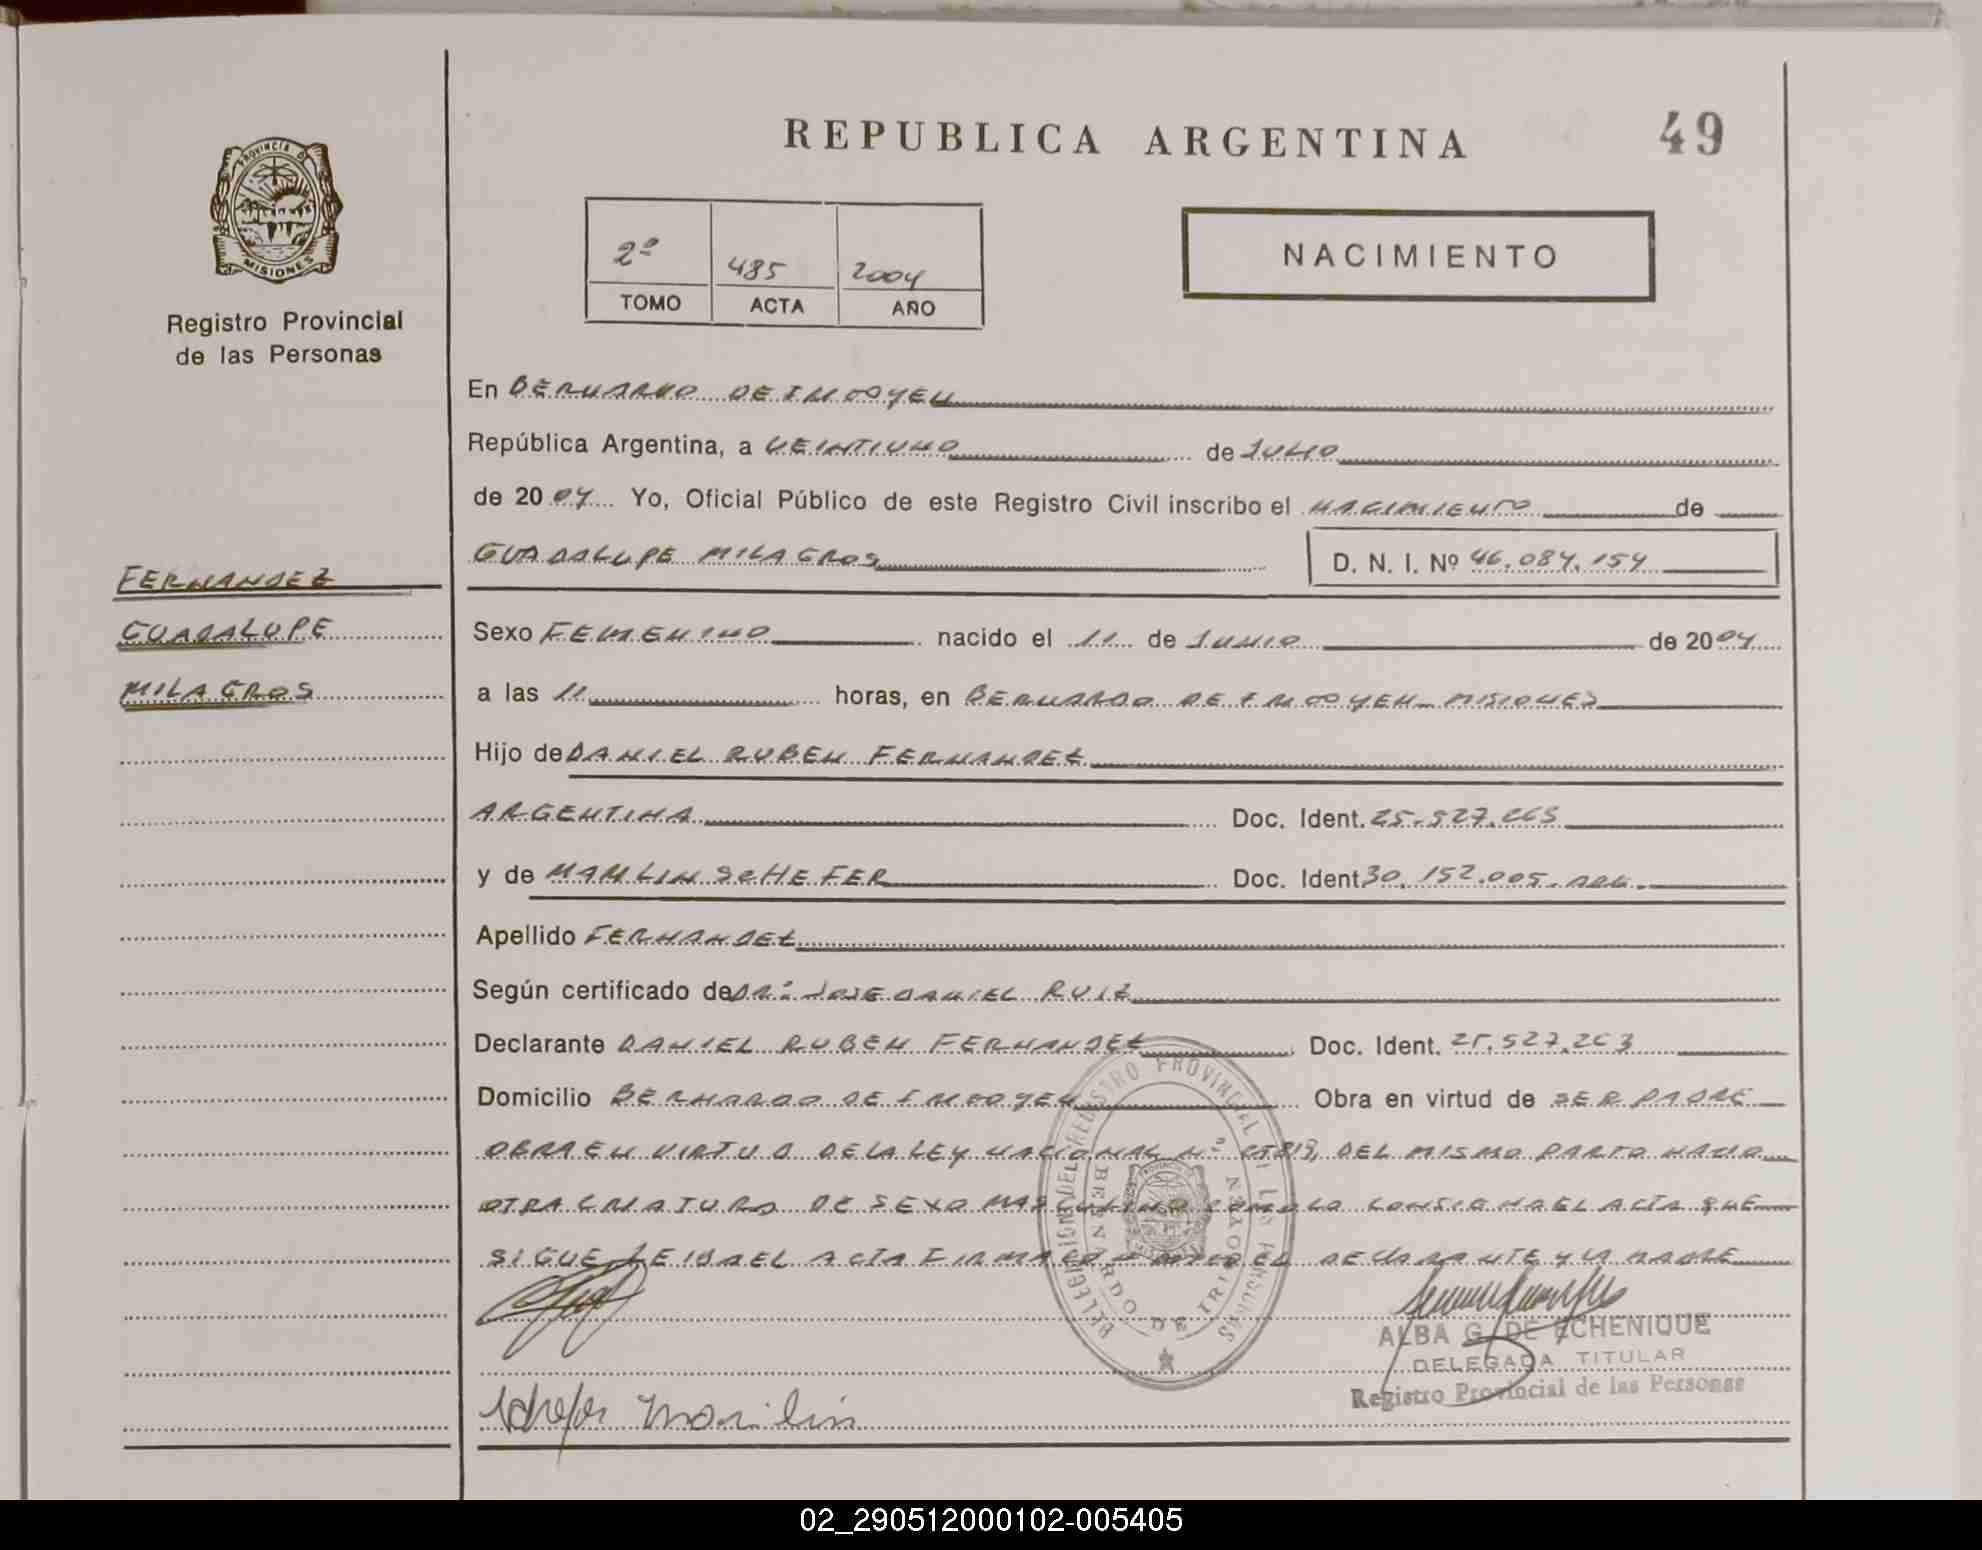 REPUBLICA ARGENTINA
49
PROVINCIA DE
MISIONES
Registro Provincial
de las Personas
2º 485 2004
TOMO ACTA AÑO
NACIMIENTO
En BERNARDO DE IRIGOYEN
República Argentina, a VEINTIUNO de JULIO
de 2004 Yo, Oficial Público de este Registro Civil inscribo el NACIMIENTO de
GUADALUPE MILAGROS D. N. I. Nº 46.084.154
FERNANDEZ
GUADALUPE
MILAGROS
Sexo FEMENINO nacido el 11 de JUNIO de 2004
a las 11 horas, en BERNARDO DE IRIGOYEN - MISIONES
Hijo de DANIEL RUBEN FERNANDEZ
ARGENTINA Doc. Ident. 25.527.263
y de MARILIN SCHEFER Doc. Ident 30.152.005. ARG.
Apellido FERNANDEZ
Según certificado de DR. JOSE DANIEL RUIZ
Declarante DANIEL RUBEN FERNANDEZ Doc. Ident. 25.527.263
Domicilio BERNARDO DE IRIGOYEN Obra en virtud de SER PADRE
OBRA EN VIRTUD DE LA LEY NACIONAL Nº DEL MISMO PARTO NACIO
OTRA CRIATURA DE SEXO MASCULINO COMO LO CONSIGNA EL ACTA QUE
SIGUE LEIDA EL ACTA FIRMAN CONMIGO EL DECLARANTE Y LA MADRE
DELEGACION DEL REGISTRO PROVINCIAL DE LAS PERSONAS
BERNARDO DE IRIGOYEN
ALBA G. DE ECHENIQUE
DELEGADA TITULAR
Registro Provincial de las Personas
Schefer Marilin
02_290512000102-005405